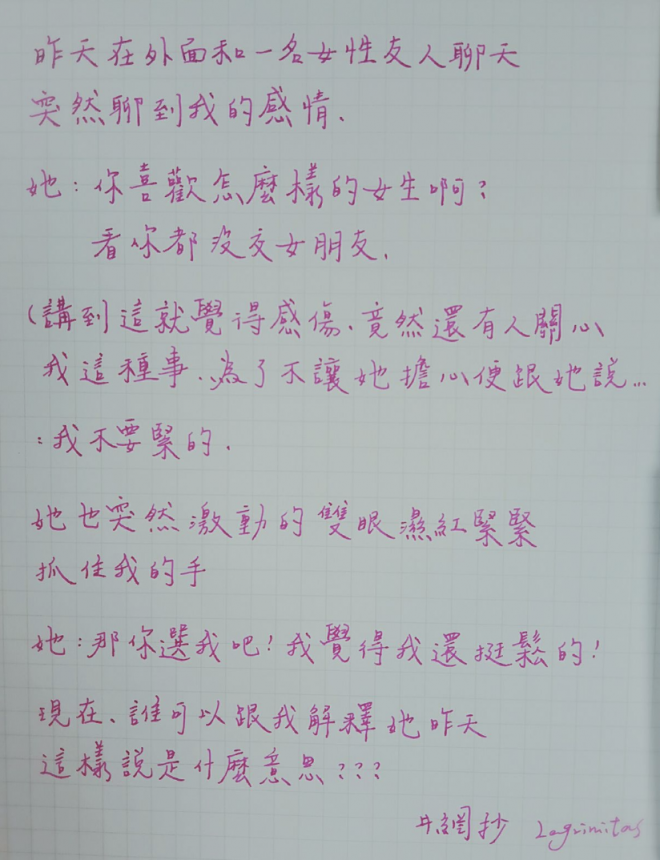 昨天在外面和一名女性友人聊天
突然聊到我的感情.
她:你喜歡怎麼樣的女生啊?
看你都沒交女朋友.
(講到這就覺得感傷.竟然還有人關心
我這種事..為了不讓她擔心便跟她說...
:我不要緊的.
她也突然激動的雙眼濕紅緊緊
抓住我的手
她:那你選我吧!我覺得我還挺鬆的!
現在、誰可以跟我解釋她昨天
這樣說是什麼意思???
#網抄 Lagrimitas